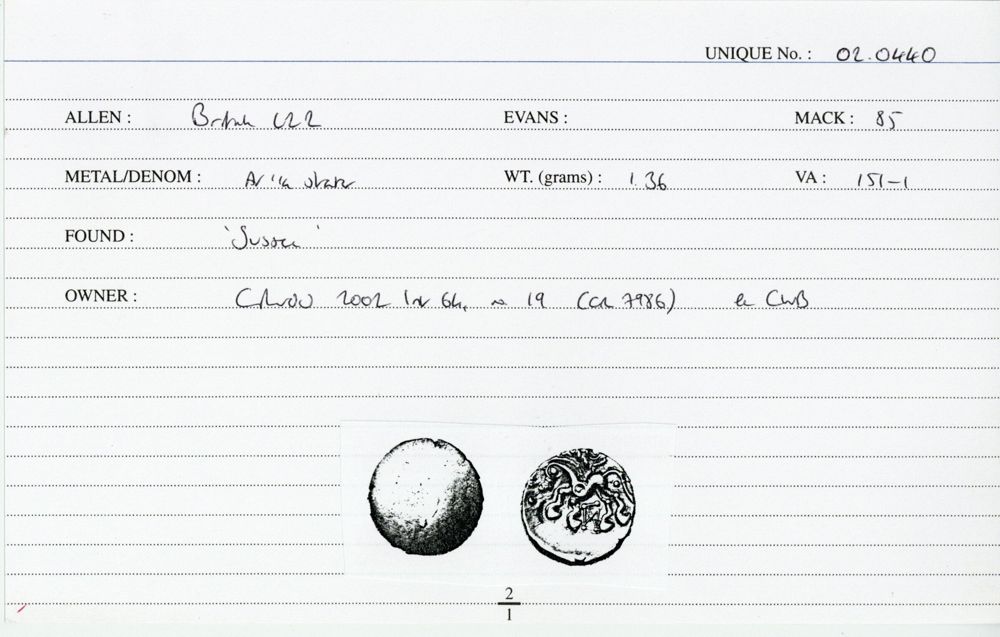 UNIQUE No. : 02.0440
ALLEN : British L22 EVANS : MACK : 85
METAL/DENOM : AV 1/4 stater WT. (grams) : 1.36 VA : 151-1
FOUND : 'Sussex'
OWNER : 2002 64, no 19 (CCI 7986) ex
2
1